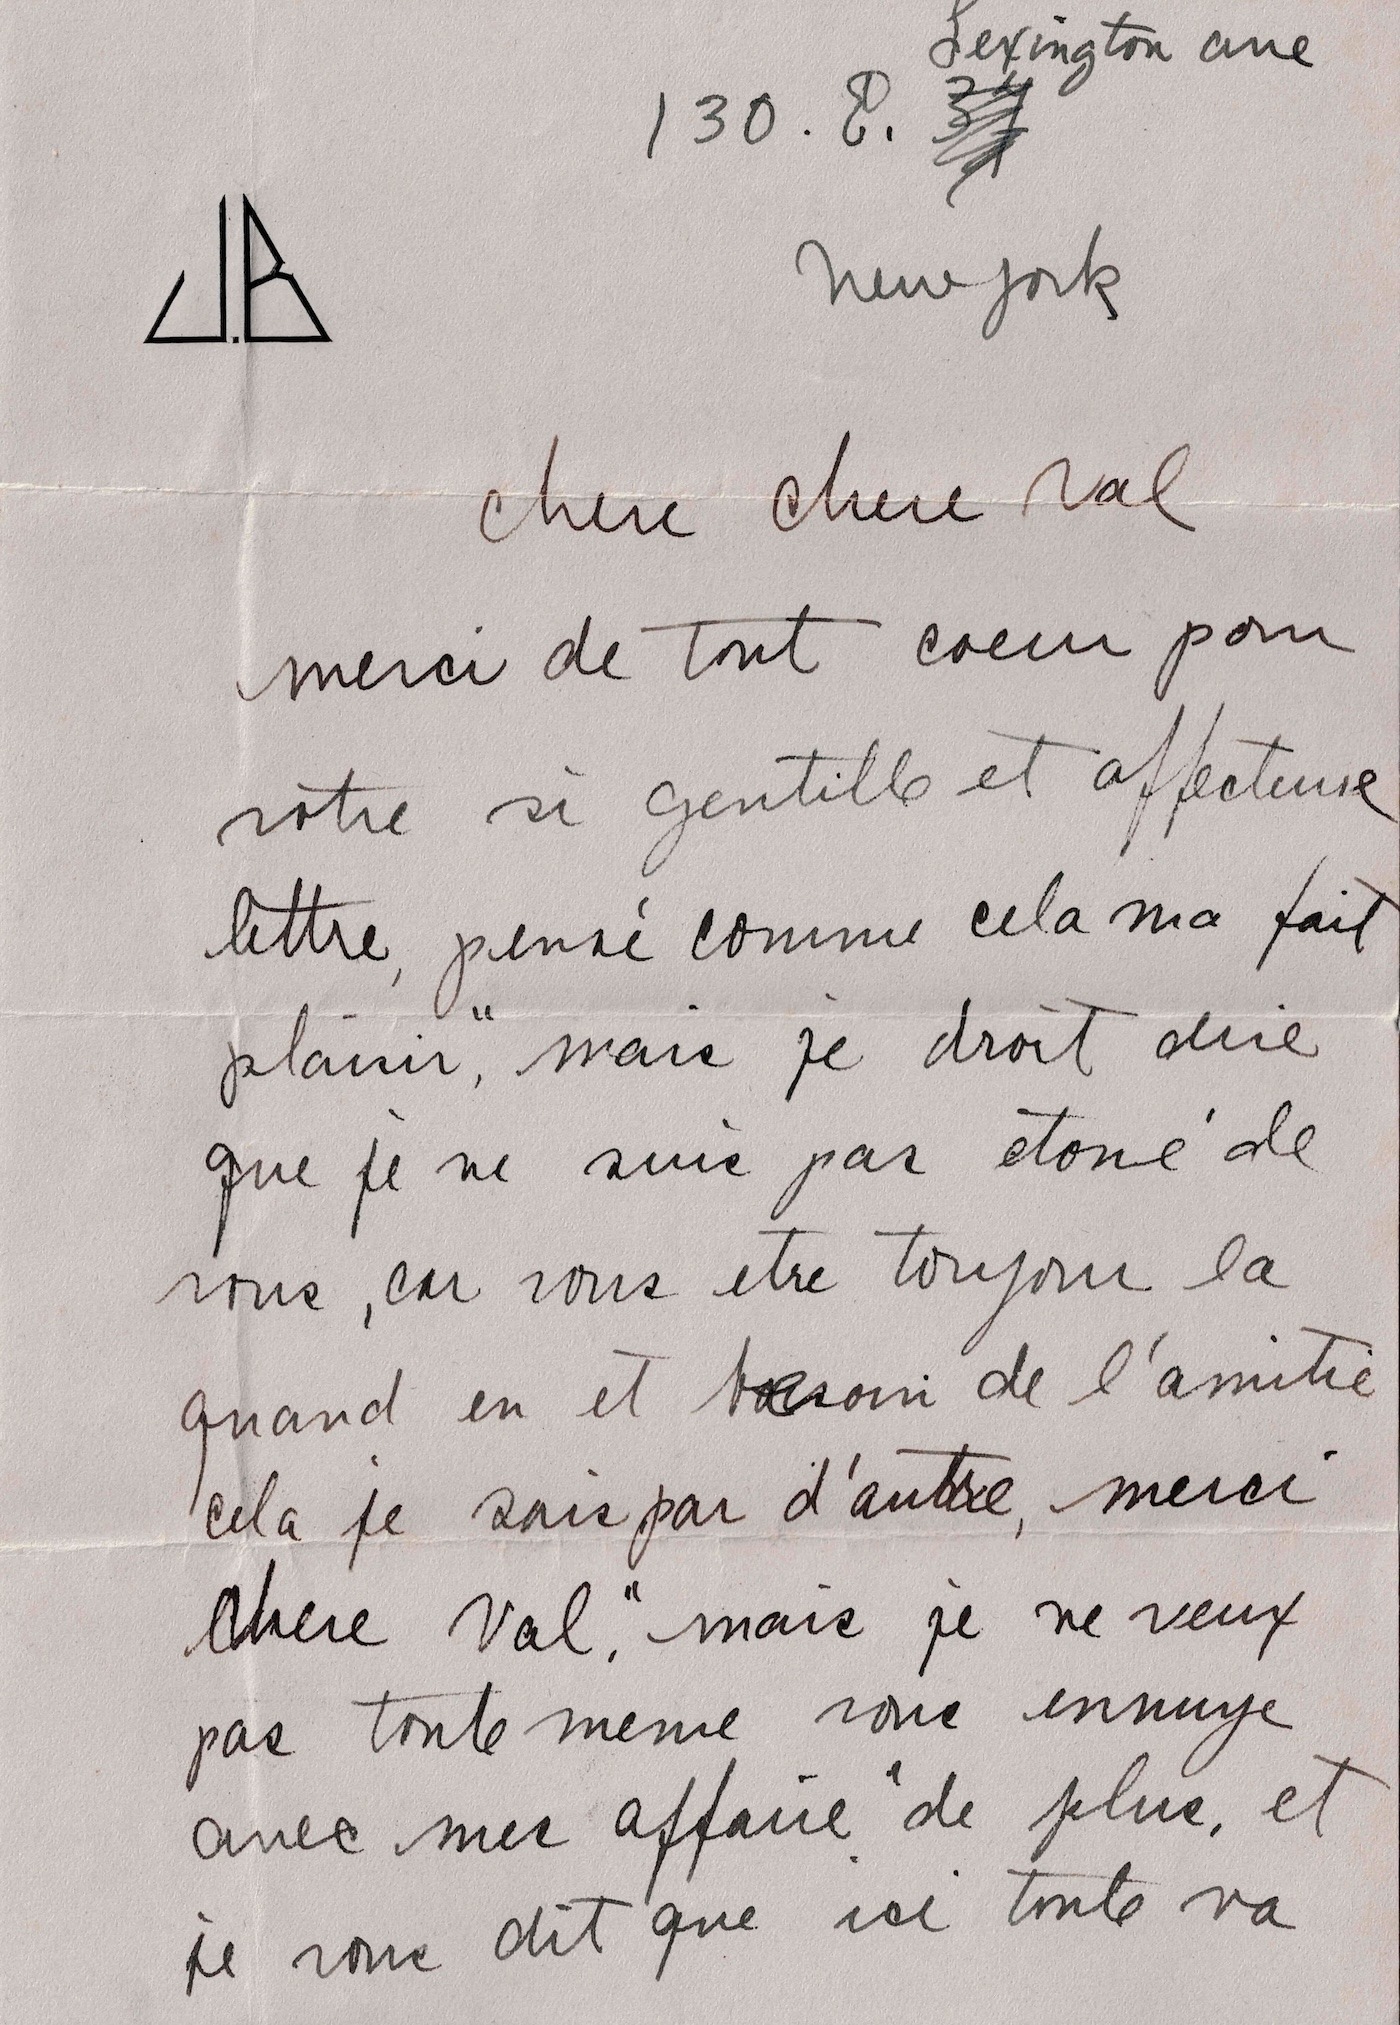 Lexington ave
130. E.
New york
J.B
chere chere Val
merci de tout coeur pour
votre si gentille et affecteuse
lettre, pensé comme cela ma fait
plaisir," mais je droit dire
que je ne suis pas étoné de
vous, car vous etre toujour la
quand en et besoin de l'amitie
cela je sais par d'autre, merci
Chere Val," mais je ne veux
pas toute meme vous ennuye
avec mes affaire" de plus, et
je vous dit que ici toute va